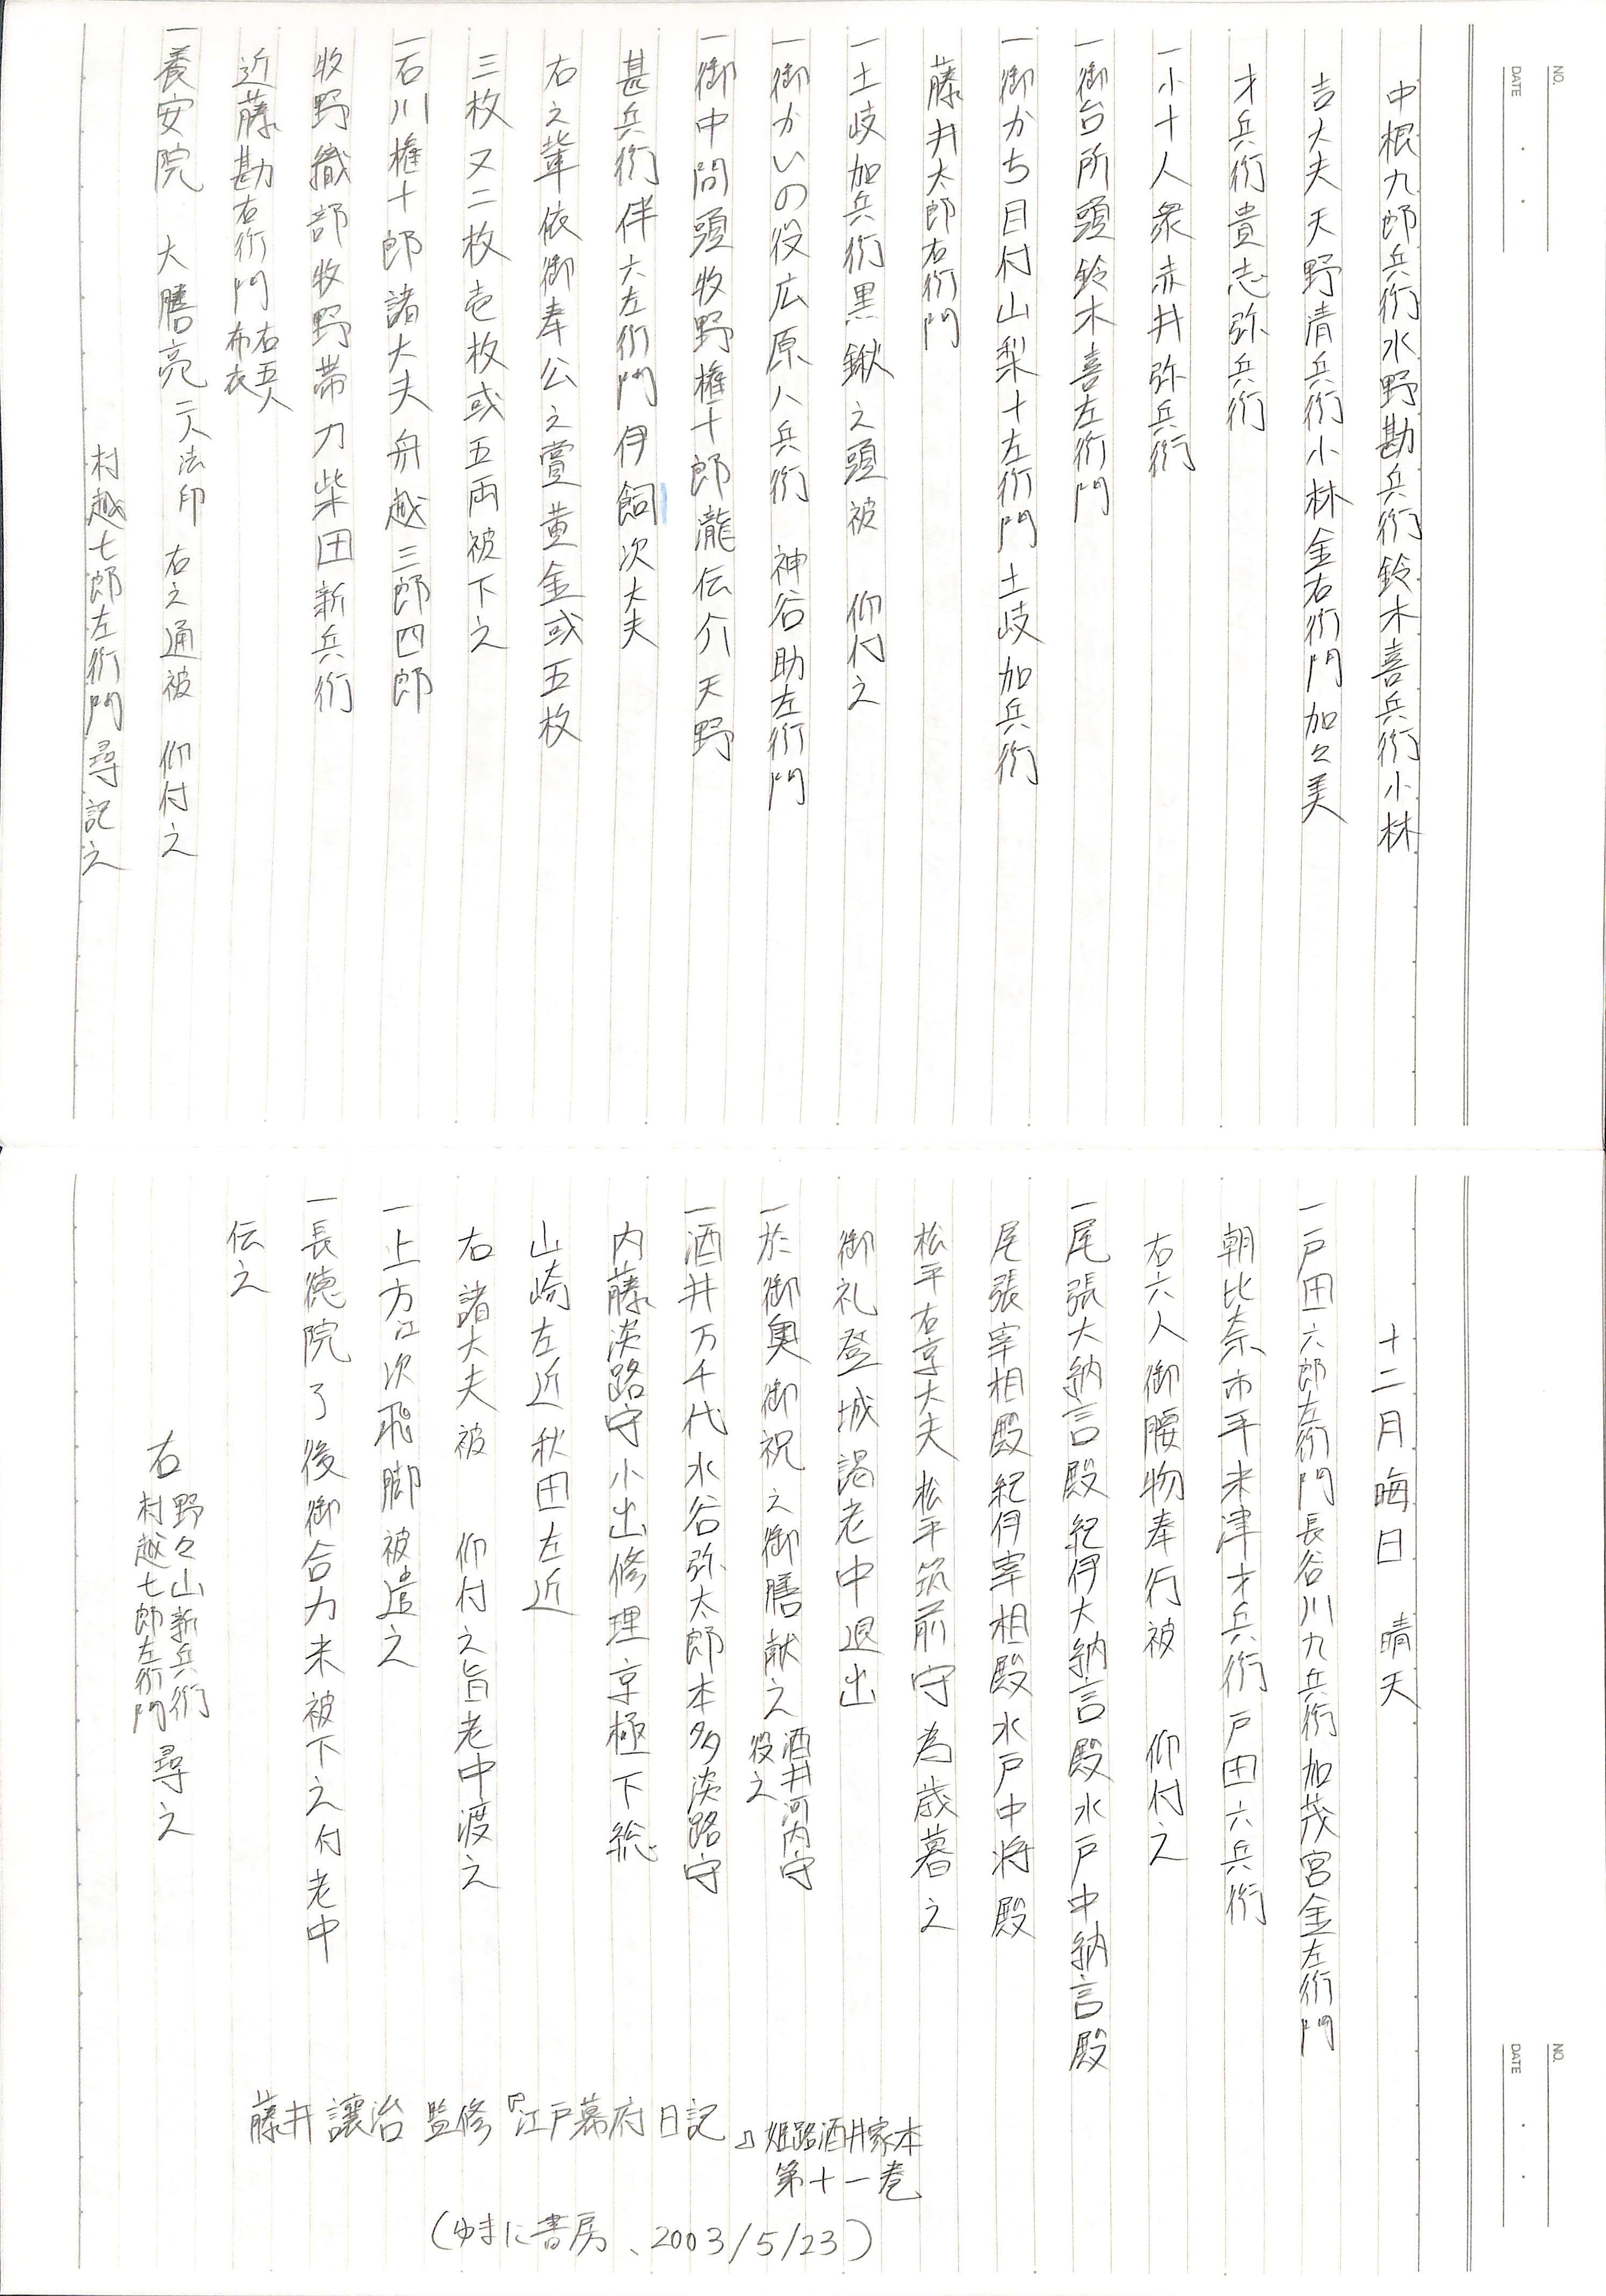 NO.
DATE
中根九郎兵衛水野勘兵衛鈴木喜兵衛小林
吉大夫天野清兵衛小林金右衛門加々美
才兵衛貴志弥兵衛
一小十人衆赤井弥兵衛
一御台所頭鈴木喜左衛門
一御かち目付山梨十左衛門土岐加兵衛
藤井太郎右衛門
一土岐加兵衛黒鍬之頭被 仰付之
一御かいの役広原八兵衛 神谷助左衛門
一御中間頭牧野権十郎瀧伝介天野
甚兵衛伴六左衛門伊飼次大夫
右之輩依御奉公之賞黄金或五枚
三枚又二枚壱枚或五両被下之
一石川権十郎諸大夫舟越三郎四郎
牧野織部牧野帯刀柴田新兵衛
近藤勘右衛門右五人布衣
一養安院 大膳亮二人法印 右之通被 仰付之
村越七郎左衛門尋記之
NO.
DATE
十二月晦日 晴天
一戸田六郎左衛門長谷川九兵衛加茂宮金左衛門
朝比奈市平米津才兵衛戸田六兵衛
右六人御腰物奉行被 仰付之
一尾張大納言殿紀伊大納言殿水戸中納言殿
尾張宰相殿紀伊宰相殿水戸中将殿
松平右京大夫松平筑前守為歳暮之
御礼登城謁老中退出
一於御奥御祝之御膳献之酒井河内守役之
一酒井万千代水谷弥太郎本多淡路守
内藤淡路守小出修理京極下総
山崎左近秋田左近
右諸大夫被 仰付之旨老中渡之
一上方江次飛脚被遣之
一長徳院了後御合力米被下之付老中
伝之
右野々山新兵衛村越七郎左衛門尋之
藤井讓治監修『江戸幕府日記』姫路酒井家本
第十一巻
(ゆまに書房、2003/5/23)